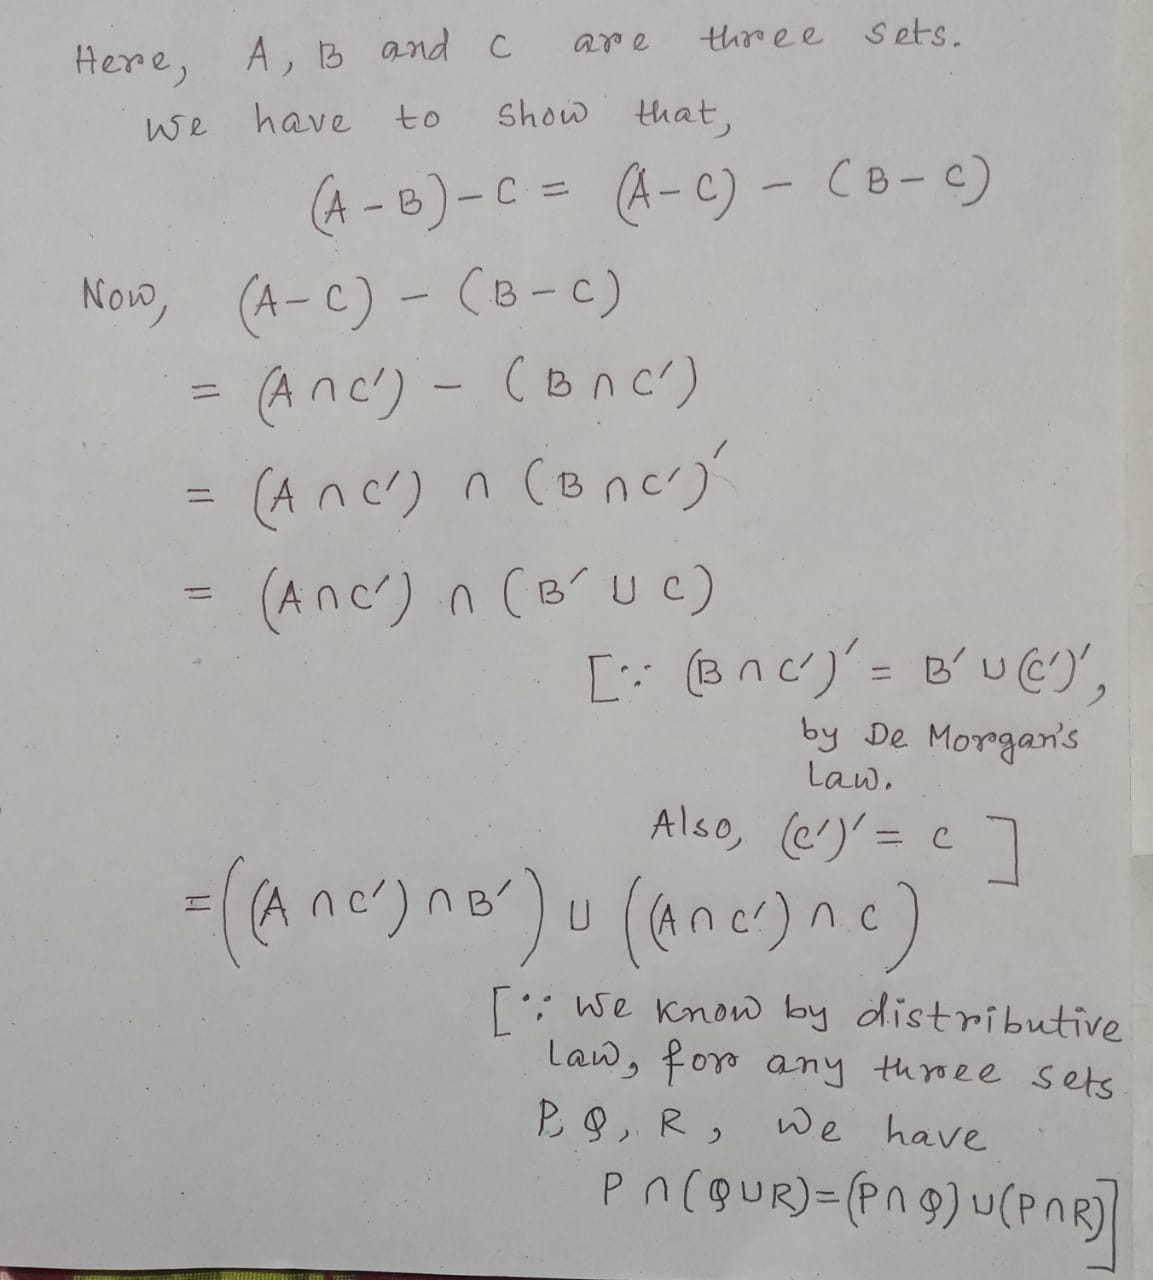 Here, A, B and C are three sets.
we have to show that,
(A - B) - C = (A - C) - (B - C)
Now, (A - C) - (B - C)
= (A ∩ C') - (B ∩ C')
= (A ∩ C') ∩ (B ∩ C')'
= (A ∩ C') ∩ (B' ∪ C)
[∵ (B ∩ C')' = B' ∪ (C')',
by De Morgan's
Law.
Also, (C')' = C ]
= ((A ∩ C') ∩ B') ∪ ((A ∩ C') ∩ C)
[∵ We know by distributive
Law, for any three sets
P, Q, R, we have
P ∩ (Q ∪ R) = (P ∩ Q) ∪ (P ∩ R)]